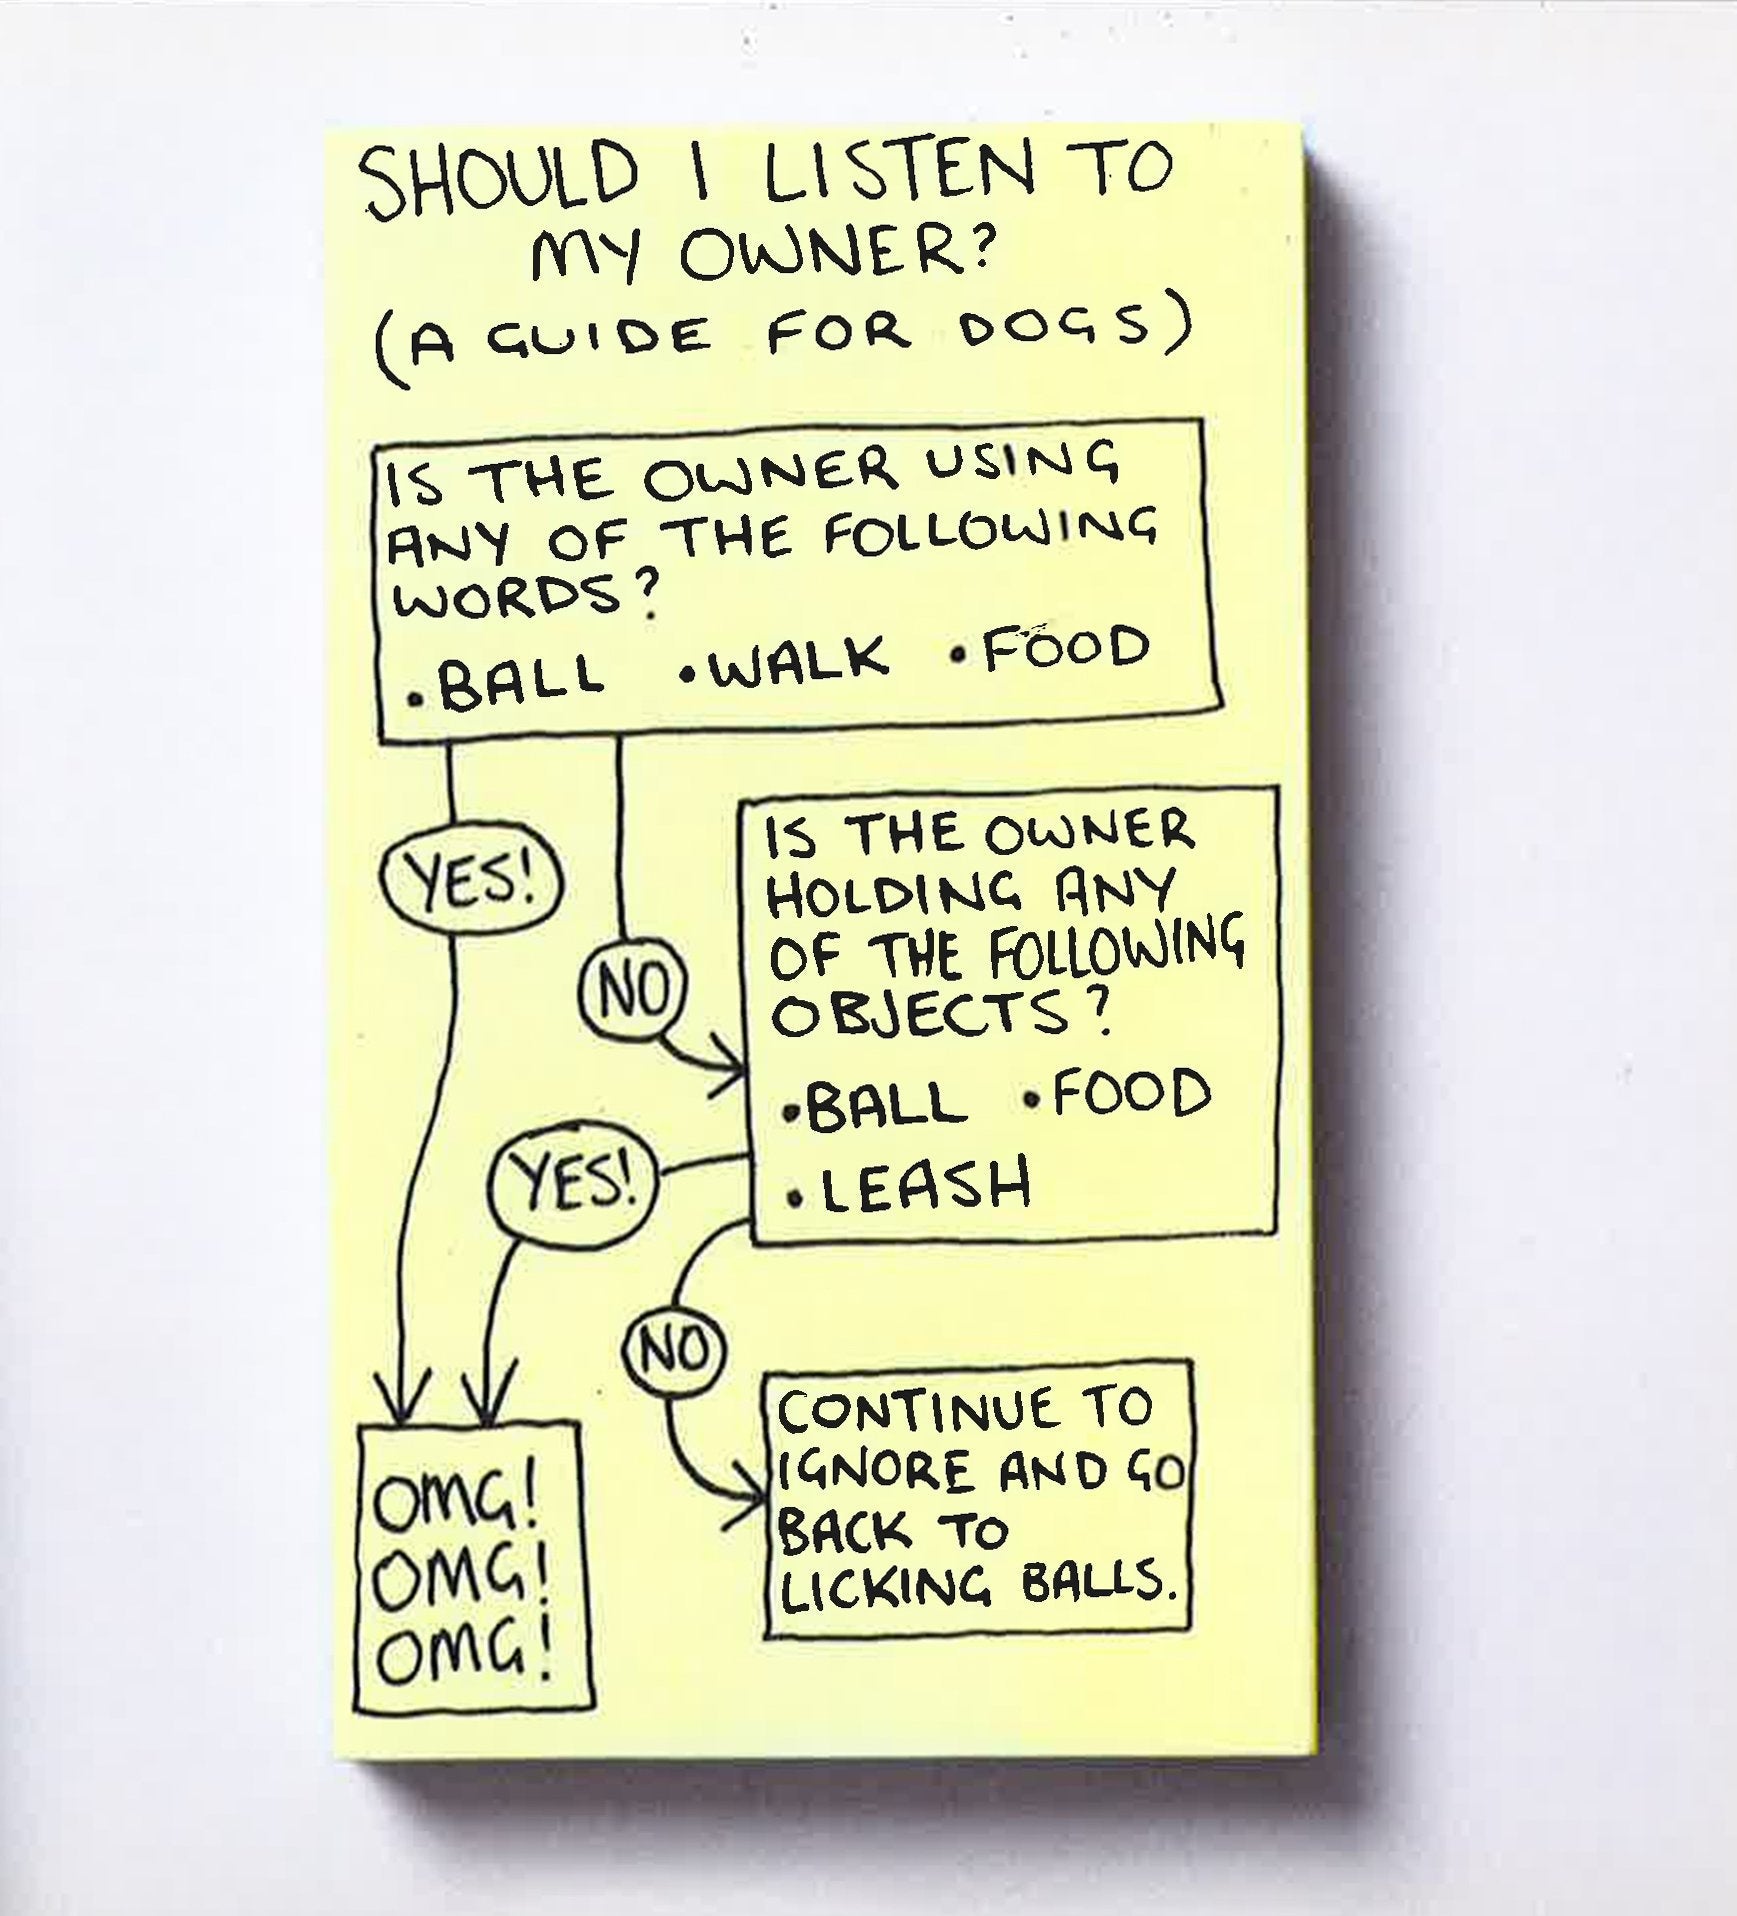 SHOULD I LISTEN TO
MY OWNER?
(A GUIDE FOR DOGS)
IS THE OWNER USING
ANY OF THE FOLLOWING
WORDS?
• BALL • WALK • FOOD
YES!
NO
IS THE OWNER
HOLDING ANY
OF THE FOLLOWING
OBJECTS?
• BALL • FOOD
• LEASH
YES!
NO
OMG!
OMG!
OMG!
CONTINUE TO
IGNORE AND GO
BACK TO
LICKING BALLS.